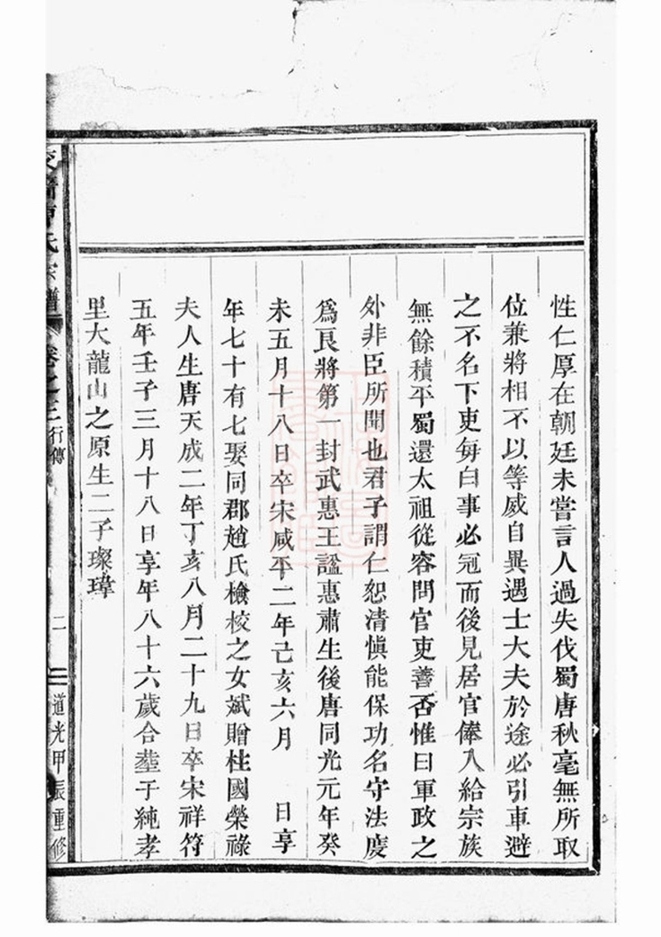 性仁厚在朝廷未嘗言人過失伐蜀唐秋毫無所取
位兼將相不以等威自異遇士大夫於途必引車避
之不名下吏每白事必冠而後見居官俸入給宗族
無餘積平蜀還太祖從容問官吏善否惟曰軍政之
外非臣所聞也君子謂仁恕清慎能保功名守法度
為良將第一封武惠王謚惠肅生後唐同光元年癸
未五月十八日卒宋咸平二年己亥六月　日享
年七十有七娶同郡趙氏檢校之女斌贈柱國榮祿
夫人生唐天成二年丁亥八月二十九日卒宋祥符
五年壬子三月十八日享年八十六歲合塟子純孝
里大龍山之原生二子璨瑋
氏宗譜
卷之
行傳
二
道光甲辰重修